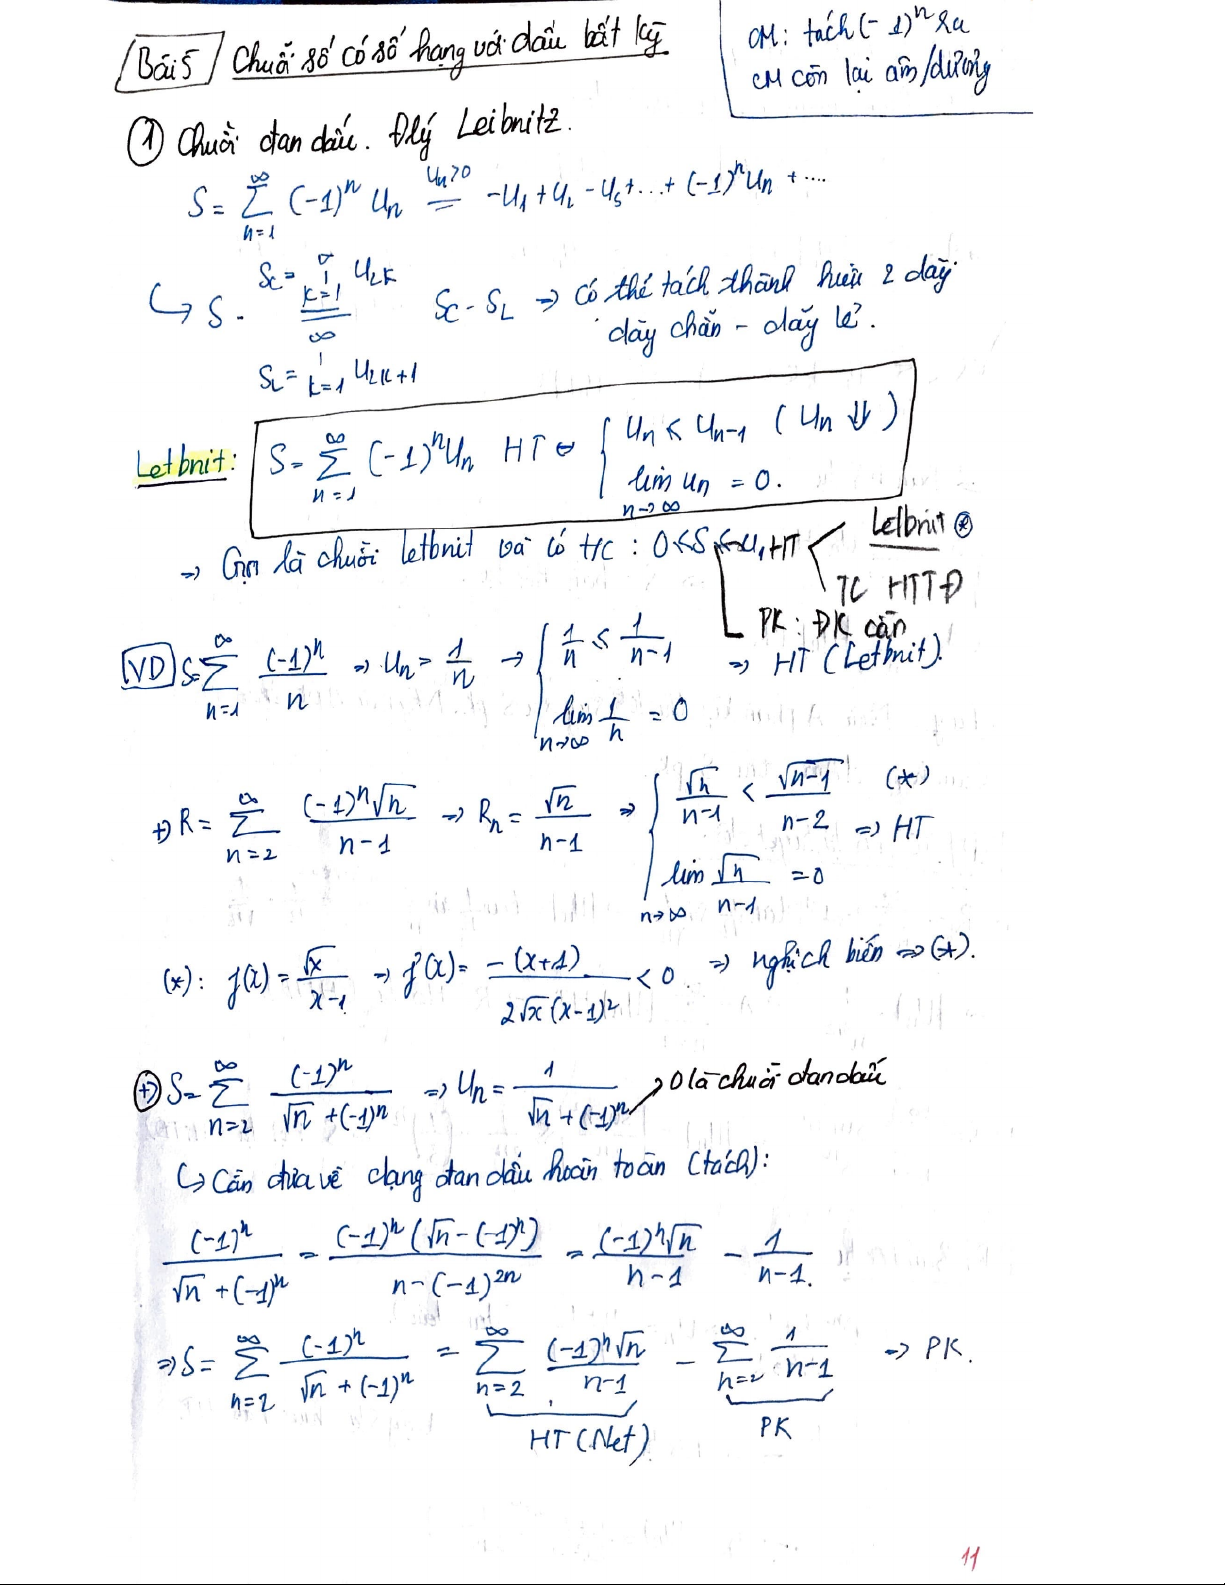 Bài 5 / Chuỗi số có số hạng với dấu bất kỳ
CM: tách (-1)^n ra
CM còn lại âm/dương
① Chuỗi đan dấu. Đlý Leibnitz.
S = ∑_{n=1}^{∞} (-1)^n U_n \overset{U_n>0}{=} -U_1 + U_2 - U_3 + ... + (-1)^n U_n + ....
S_C = _{k=1}^{∞} U_{2k}
↳ S = S_C - S_L ⇒ Có thể tách thành hiệu 2 dãy
dãy chẵn - dãy lẻ.
S_L = _{k=1}^{∞} U_{2k+1}
Letbnit: S = ∑_{n=1}^{∞} (-1)^n U_n HT ⇔ { U_n < U_{n-1} (U_n ↓↓)
lim_{n→∞} U_n = 0.
⇒ Gọi là chuỗi letbnit và có t/c : 0<S<U_1
HT < Leibnit ⊛
TC HTTĐ
PK: ĐK cần
VD S = ∑_{n=1}^{∞} (-1)^n / n ⇒ U_n = 1/n → { 1/n ≤ 1/(n-1) ⇒ HT (Letbnit).
lim_{n→∞} 1/n = 0
+) R = ∑_{n=2}^{∞} (-1)^n √n / (n-1) ⇒ R_n = √n / (n-1) ⇒ { √n / (n-1) < √(n-1) / (n-2) (*) ⇒ HT
lim_{n→∞} √n / (n-1) = 0
(*): f(x) = √x / (x-1) ⇒ f'(x) = -(x+1) / (2√x (x-1)^2) < 0 ⇒ nghịch biến ⇒ (*).
+) S = ∑_{n=2}^{∞} (-1)^n / (√n + (-1)^n) ⇒ U_n = 1 / (√n + (-1)^n) → 0 là chuỗi đan dấu
↳ Cần đưa về dạng đan dấu hoàn toàn (tách):
(-1)^n / (√n + (-1)^n) = (-1)^n (√n - (-1)^n) / (n - (-1)^{2n}) = (-1)^n √n / (n-1) - 1 / (n-1).
⇒ S = ∑_{n=2}^{∞} (-1)^n / (√n + (-1)^n) = ∑_{n=2}^{∞} (-1)^n √n / (n-1) - ∑_{n=2}^{∞} 1 / (n-1) → PK.
HT (Net) PK
11